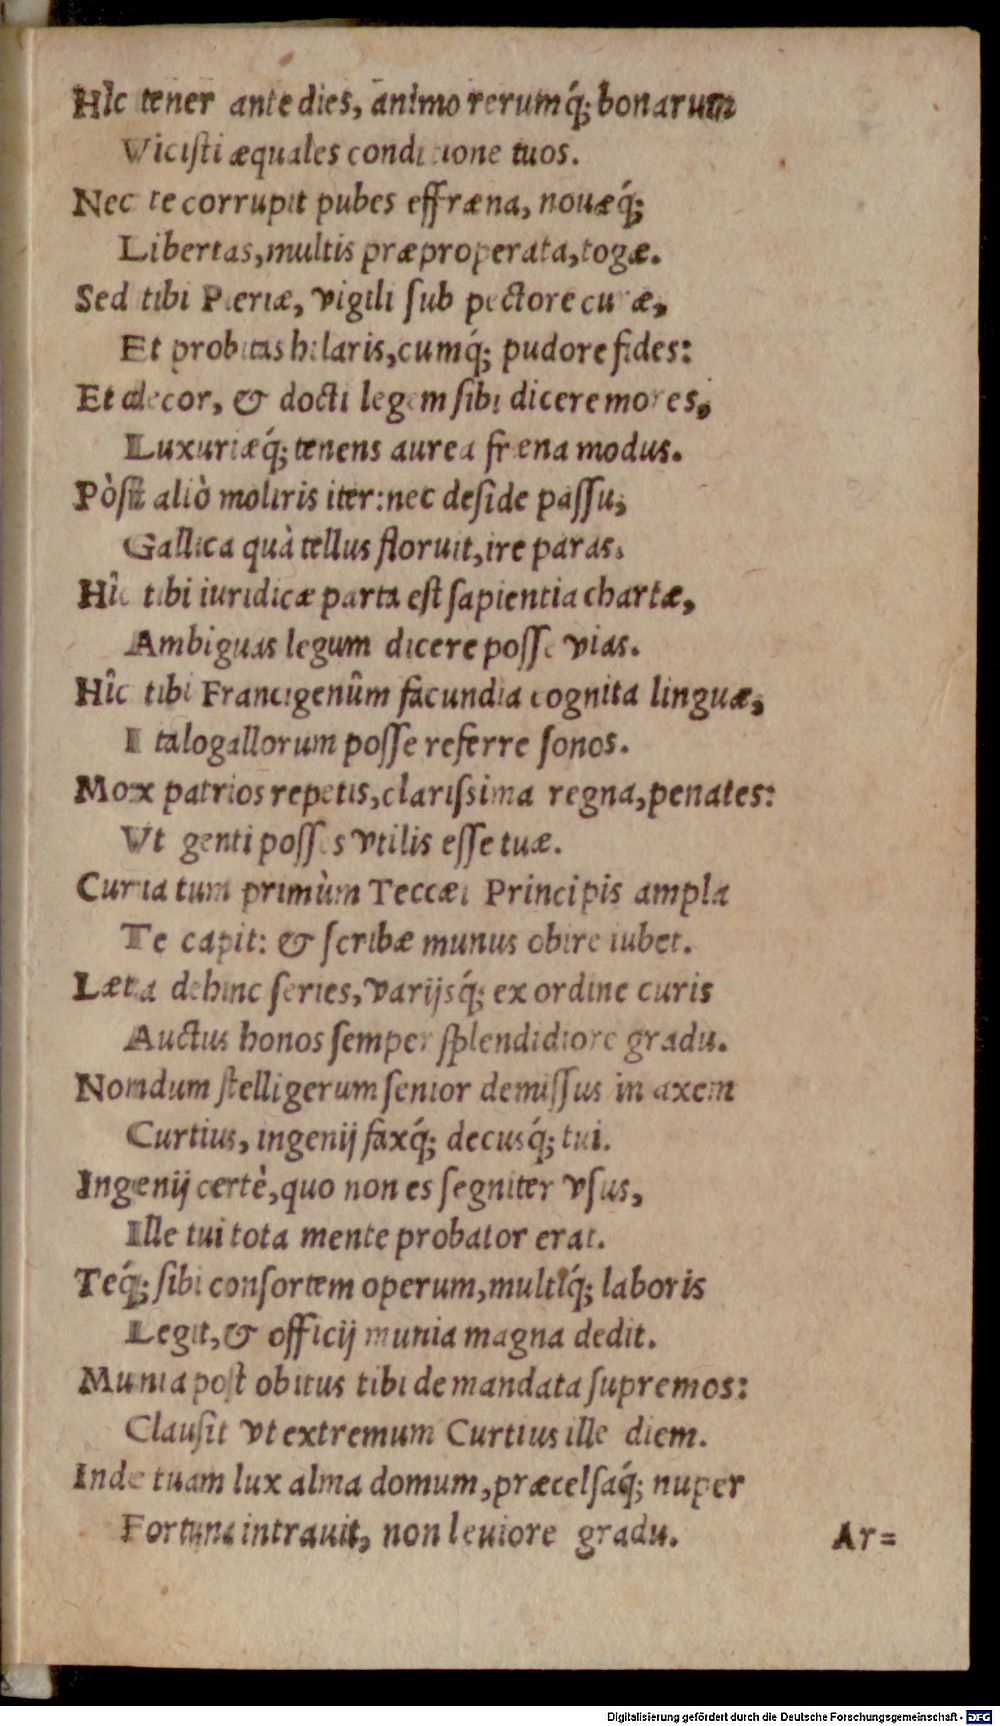 Hîc tener ante dies, animo rerumq́; bonarum
Viciſti æquales conditione tuos.
Nec te corrupit pubes effræna, nouæq́;
Libertas, multis præproperata, togæ.
Sed tibi Pieriæ, vigili ſub pectore curæ,
Et probitas hilaris, cumq́; pudore fides:
Et decor, & docti legem ſibi dicere mores,
Luxuriæq́; tenens aurea fræna modus.
Pòſt aliò moliris iter: nec deſide paſſu,
Gallica quà tellus floruit, ire paras.
Hîc tibi iuridicæ parta eſt ſapientia chartæ,
Ambiguas legum dicere poſſe vias.
Hîc tibi Francigenûm facundia cognita linguæ,
Italogallorum poſſe referre ſonos.
Mox patrios repetis, clariſsima regna, penates:
Vt genti poſſes vtilis eſſe tuæ.
Curia tum primùm Teccæi Principis ampla
Te capit: & ſcribæ munus obire iubet.
Læta dehinc ſeries, varijsq́; ex ordine curis
Auctus honos ſemper ſplendidiore gradu.
Nondum ſtelligerum ſenior demiſſus in axem
Curtius, ingenij faxq́; decusq́; tui.
Ingenij certè, quo non es ſegniter vſus,
Ille tui tota mente probator erat.
Teq́; ſibi conſortem operum, multiq́; laboris
Legit, & officij munia magna dedit.
Munia poſt obitus tibi demandata ſupremos:
Clauſit vt extremum Curtius ille diem.
Inde tuam lux alma domum, præcelſaq́; nuper
Fortuna intrauit, non leuiore gradu.
Ar=
Digitalisierung gefördert durch die Deutsche Forschungsgemeinschaft - DFG